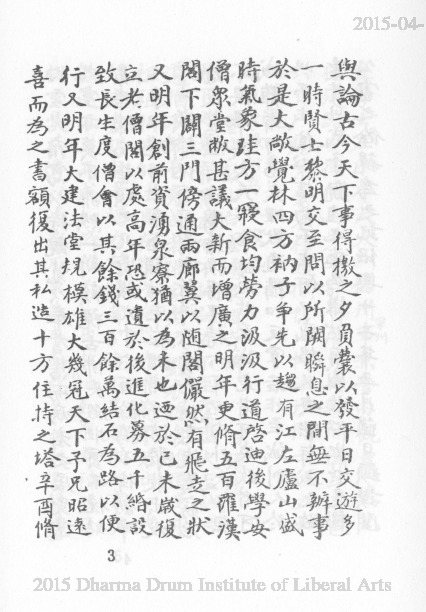 2015-04-
與論古今天下事得檄之夕負囊以發平日交遊多
一時賢士黎明交至問以所闕瞬息之間無不辦事
於是大敞覺林四方衲子爭先以趨有江左廬山盛
時氣象珪方一寢食均勞力汲汲行道啓迪後學每
僧眾堂敝甚議大新而增廣之明年更脩五百羅漢
閣下闢三門傍通兩廊翼以陁閣儼然有飛走之狀
又明年創前資湧泉寮猶以為未也迺於己未歲復
立老僧閣以處高年恐或遺於後進化募五千緡設
致長生度僧會以其餘錢三百餘萬結石為路以便
行又明年大建法堂規模雄大幾冠天下子兄昭遠
喜而為之書額復出其私造十方住持之塔辛酉脩
3
2015 Dharma Drum Institute of Liberal Arts